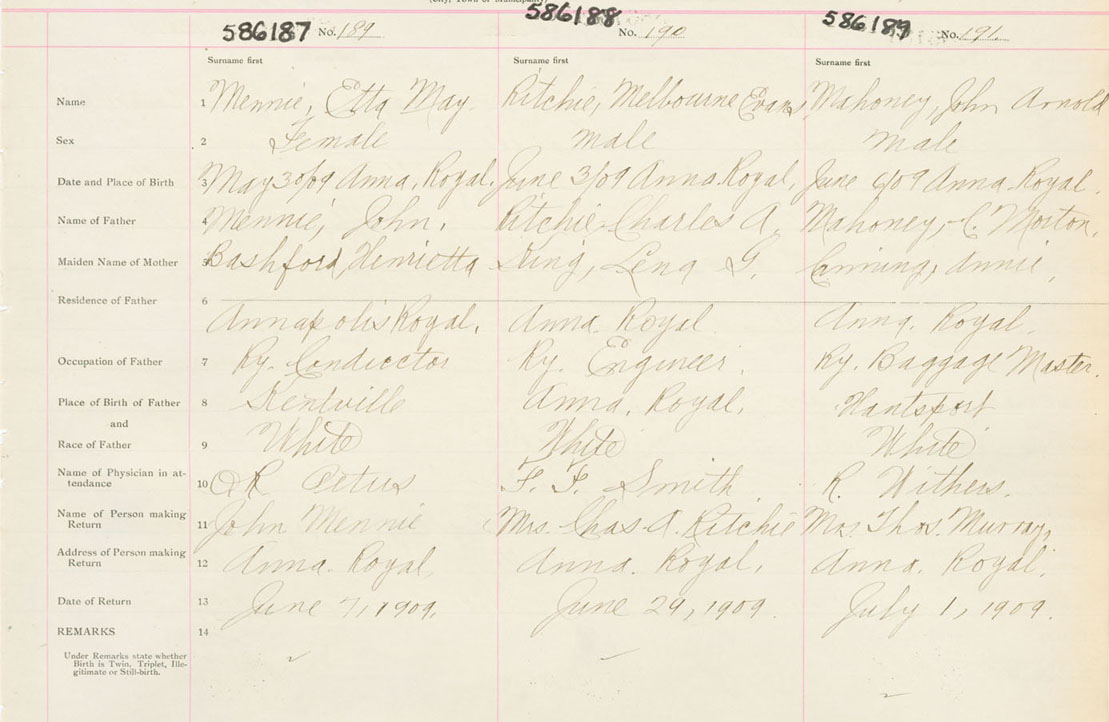 (City, Town or Municipality)
586187 No. 189 586188 No. 190 586189 No. 191.
Surname first Surname first Surname first
Name 1 Mennie, Etta May. Ritchie, Melbourne Evans, Mahoney, John Arnold
Sex 2 Female male male
Date and Place of Birth 3 May 30/09 Anna. Royal. June 3/09 Anna. Royal, June 6/09 Anna. Royal.
Name of Father 4 Mennie, John. Ritchie, Charles A. Mahoney, C. Morton,
Maiden Name of Mother 5 Bashford, Henrietta King, Lena G. Annie,
Residence of Father 6
Annapolis Royal. Anna. Royal Anna. Royal.
Occupation of Father 7 Ry. Conductor Ry. Engineer. Ry. Baggage Master.
Place of Birth of Father 8 Kentville Anna. Royal. Hantsport
and
Race of Father 9 White White White
Name of Physician in at-
tendance 10 F. F. Smith. R. Withers.
Name of Person making
Return 11 John Mennie Mrs. Chas. A. Ritchie Mrs. Thos. Murray,
Address of Person making
Return 12 Anna. Royal, Anna. Royal. Anna. Royal.
Date of Return 13 June 7, 1909. June 29, 1909. July 1, 1909.
REMARKS 14
Under Remarks state whether
Birth is Twin, Triplet, Ille-
gitimate or Still-birth.